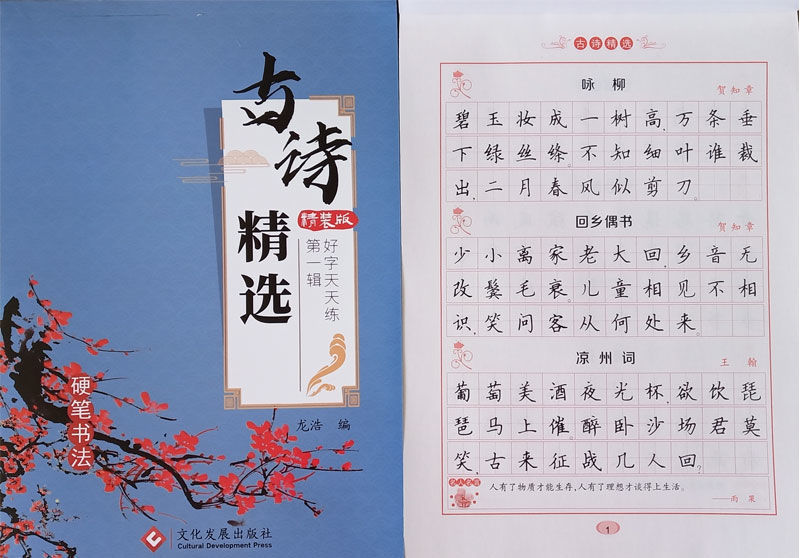 古诗
精选
精装版
好字天天练
第一辑
硬笔书法
龙浩 编
文化发展出版社
Cultural Development Press
古诗精选
咏柳
贺知章
碧玉妆成一树高,万条垂
下绿丝绦。不知细叶谁裁
出,二月春风似剪刀。
回乡偶书
贺知章
少小离家老大回,乡音无
改鬓毛衰。儿童相见不相
识,笑问客从何处来。
凉州词
王翰
葡萄美酒夜光杯,欲饮琵
琶马上催。醉卧沙场君莫
笑,古来征战几人回。
名人名言
人有了物质才能生存,人有了理想才谈得上生活。
——雨果
1